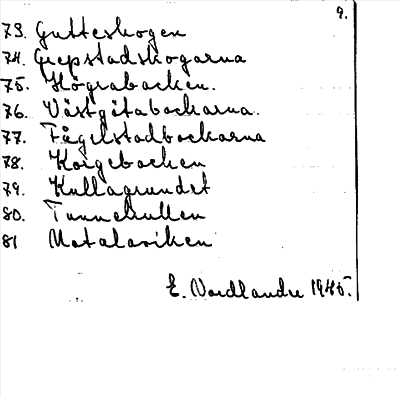 9.
73. Gutteskogen
74. Grepstadskogarna
75. Högrabacken.
76. Västgötabackarna.
77. Fågelstadbackarna
78. Korgebacken
79. Kullagrundet
80. Tunnekullen
81 Motalaviken
E. Nordlander 1945.